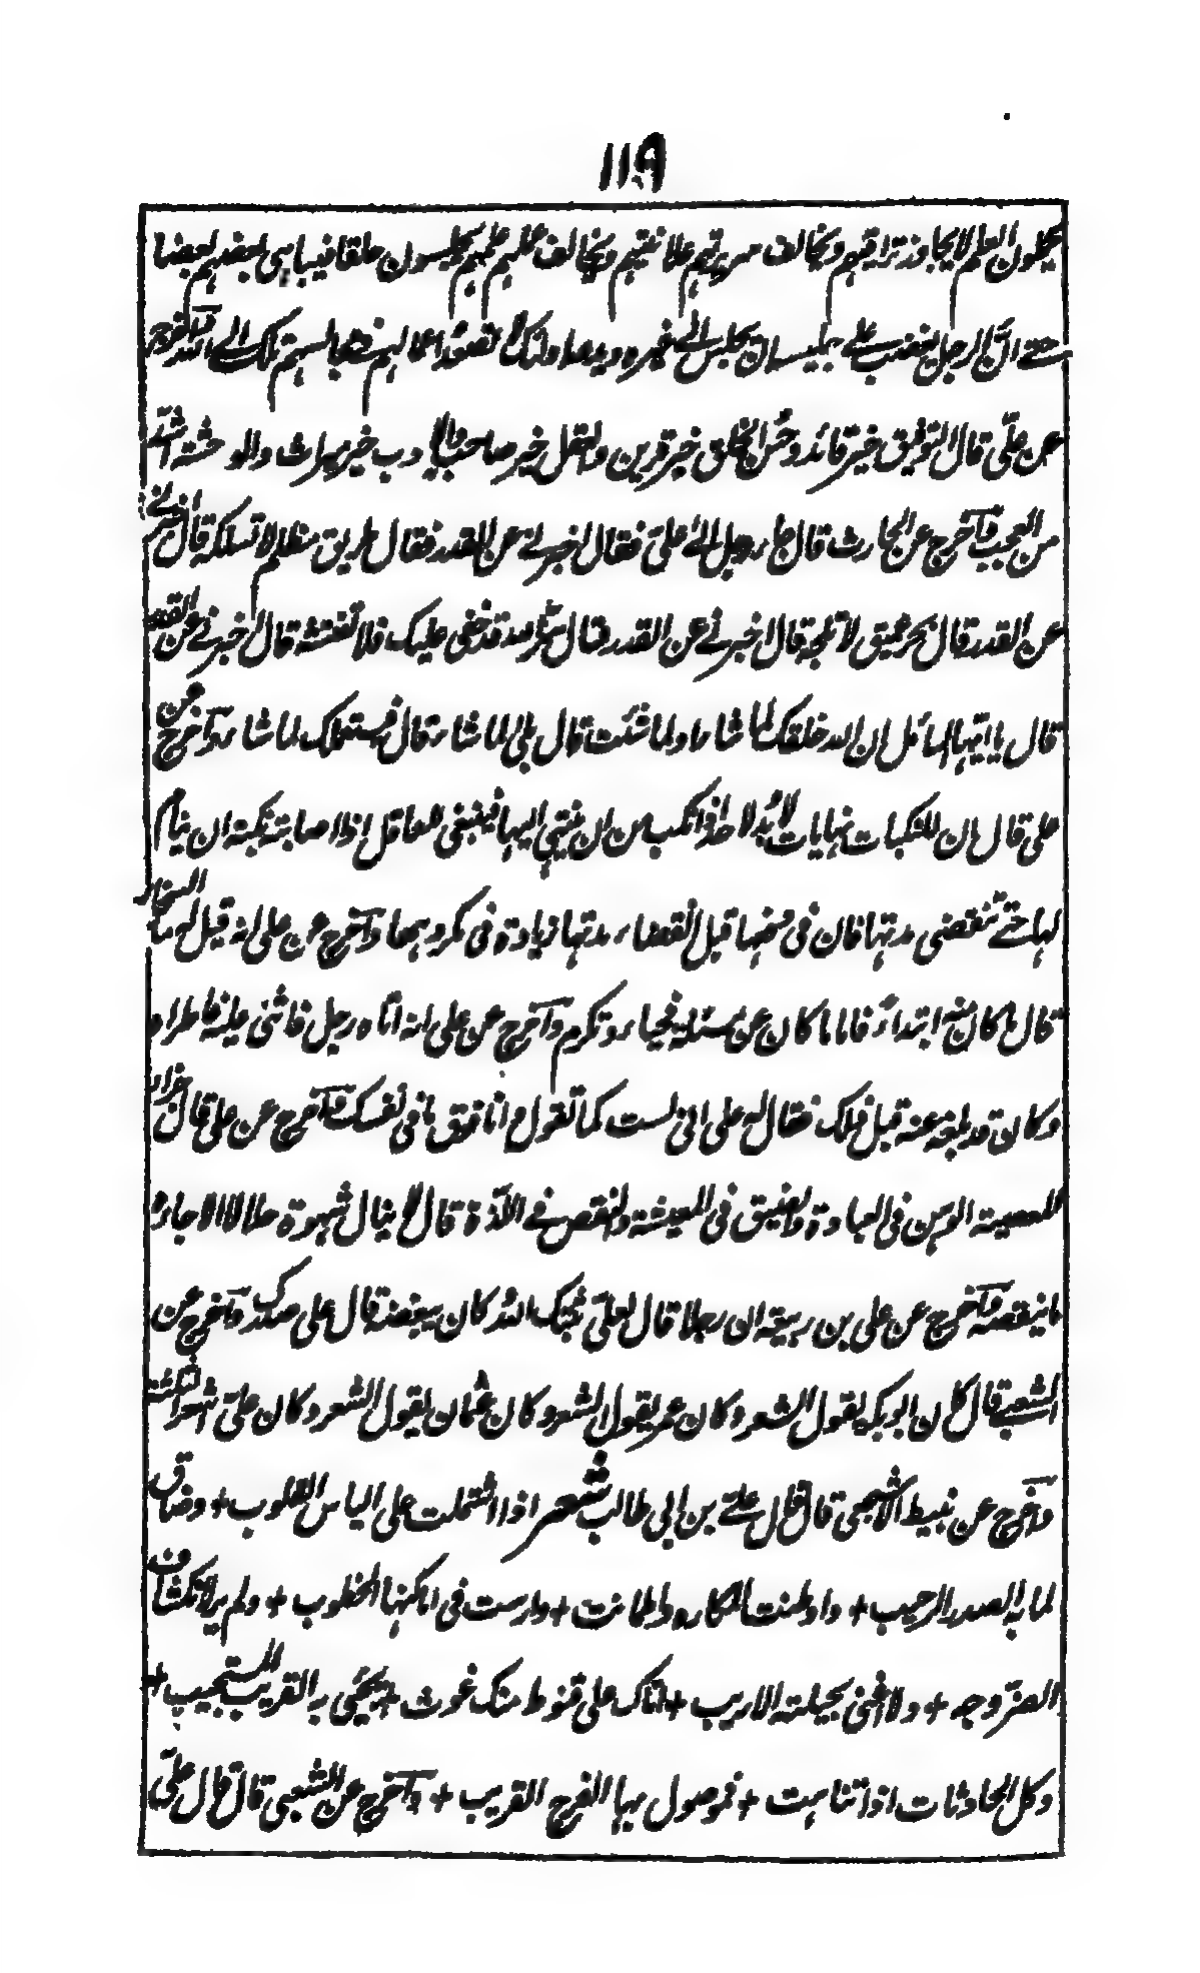 ١١٩
يحملون العلم لا يجاوز تراقيهم ويخالف سريرتهم علانيتهم ويخالف عملهم علمهم يجلسون حلقا فيباهى بعضهم بعضا
حتے ان الرجل يغضب علے جليسه ان يجلس الى غيره ويدعه اولئك لا تصعد اعمالهم فى مجالسهم تلك الے الله وآخرج
عن علىّ قال التوفيق خير قائد وحُسن الخلق خير قرين والعقل خير صاحب والادب خير ميراث ولا وحشة اشدّ
من العجب وآخرج عن الحارث قال جاء رجل الى علىّ فقال اخبرنے عن القدر فقال طريق مظلم لا تسلكه قال اخبرنے
عن القدر قال بحر عميق لا تلجه قال اخبرنے عن القدر قال سرّ الله قد خفى عليك فلا تفتشه قال اخبرنے عن القدر
قال يا ايّها السائل ان الله خلقك لما شاء او لما شئت قال بلى لما شاء قال فيستعملك لما شاء وآخرج عن
على قال ان للنكبات نهايات لا بُدّ لاحد اذا نكب من ان ينتهى اليها فينبغى للعاقل اذا اصابته نكبة ان ينام
لها حتے تنقضى مدتها فان فى دفعها قبل انقضاء مدتها زيادة فى مكروهها وآخرج عن على انه قيل له ما السخاء
قال ما كان منه ابتداءً فاما ما كان عن مسئلة فحياء وتكرم وآخرج عن على انه اتاه رجل فاثنى عليه فاطراه
وكان قد بلغه عنه قبل ذلك فقال له على انى لست كما تقول وانا فوق ما فى نفسك وآخرج عن على قال جزاء
المعصية الوهن فى العبادة والضيق فى المعيشة والنقص فے اللذّة قال لا ينال شهوة حلالا الا جاءه
ما ينغصه وآخرج عن على بن ربيعة ان رجلا قال لعلىّ ثبتك الله وكان يبغضه قال على صدرك وآخرج عن
الشعبے قال كان ابو بكر يقول الشعر وكان عمر يقول الشعر وكان عثمان يقول الشعر وكان علىّ اشعر الثلثة
وآخرج عن نبيط الاشجعى قال قال علے بن ابى طالب شعر اذا اشتملت على الياس القلوب + وضاق
لما به الصدر الرحيب + واوطنت المكاره واطمانت + وارست فى اماكنها الخطوب + ولم ير لانكشاف
الضرّ وجه + ولا اغنى بحيلته الاريب + اتاك على قنوط منك غوث + يجئ به القريب المستجيب +
وكل الحادثات اذا تناهت + فموصول بها الفرج القريب + وآخرج عن الشعبى قال قال علىّ